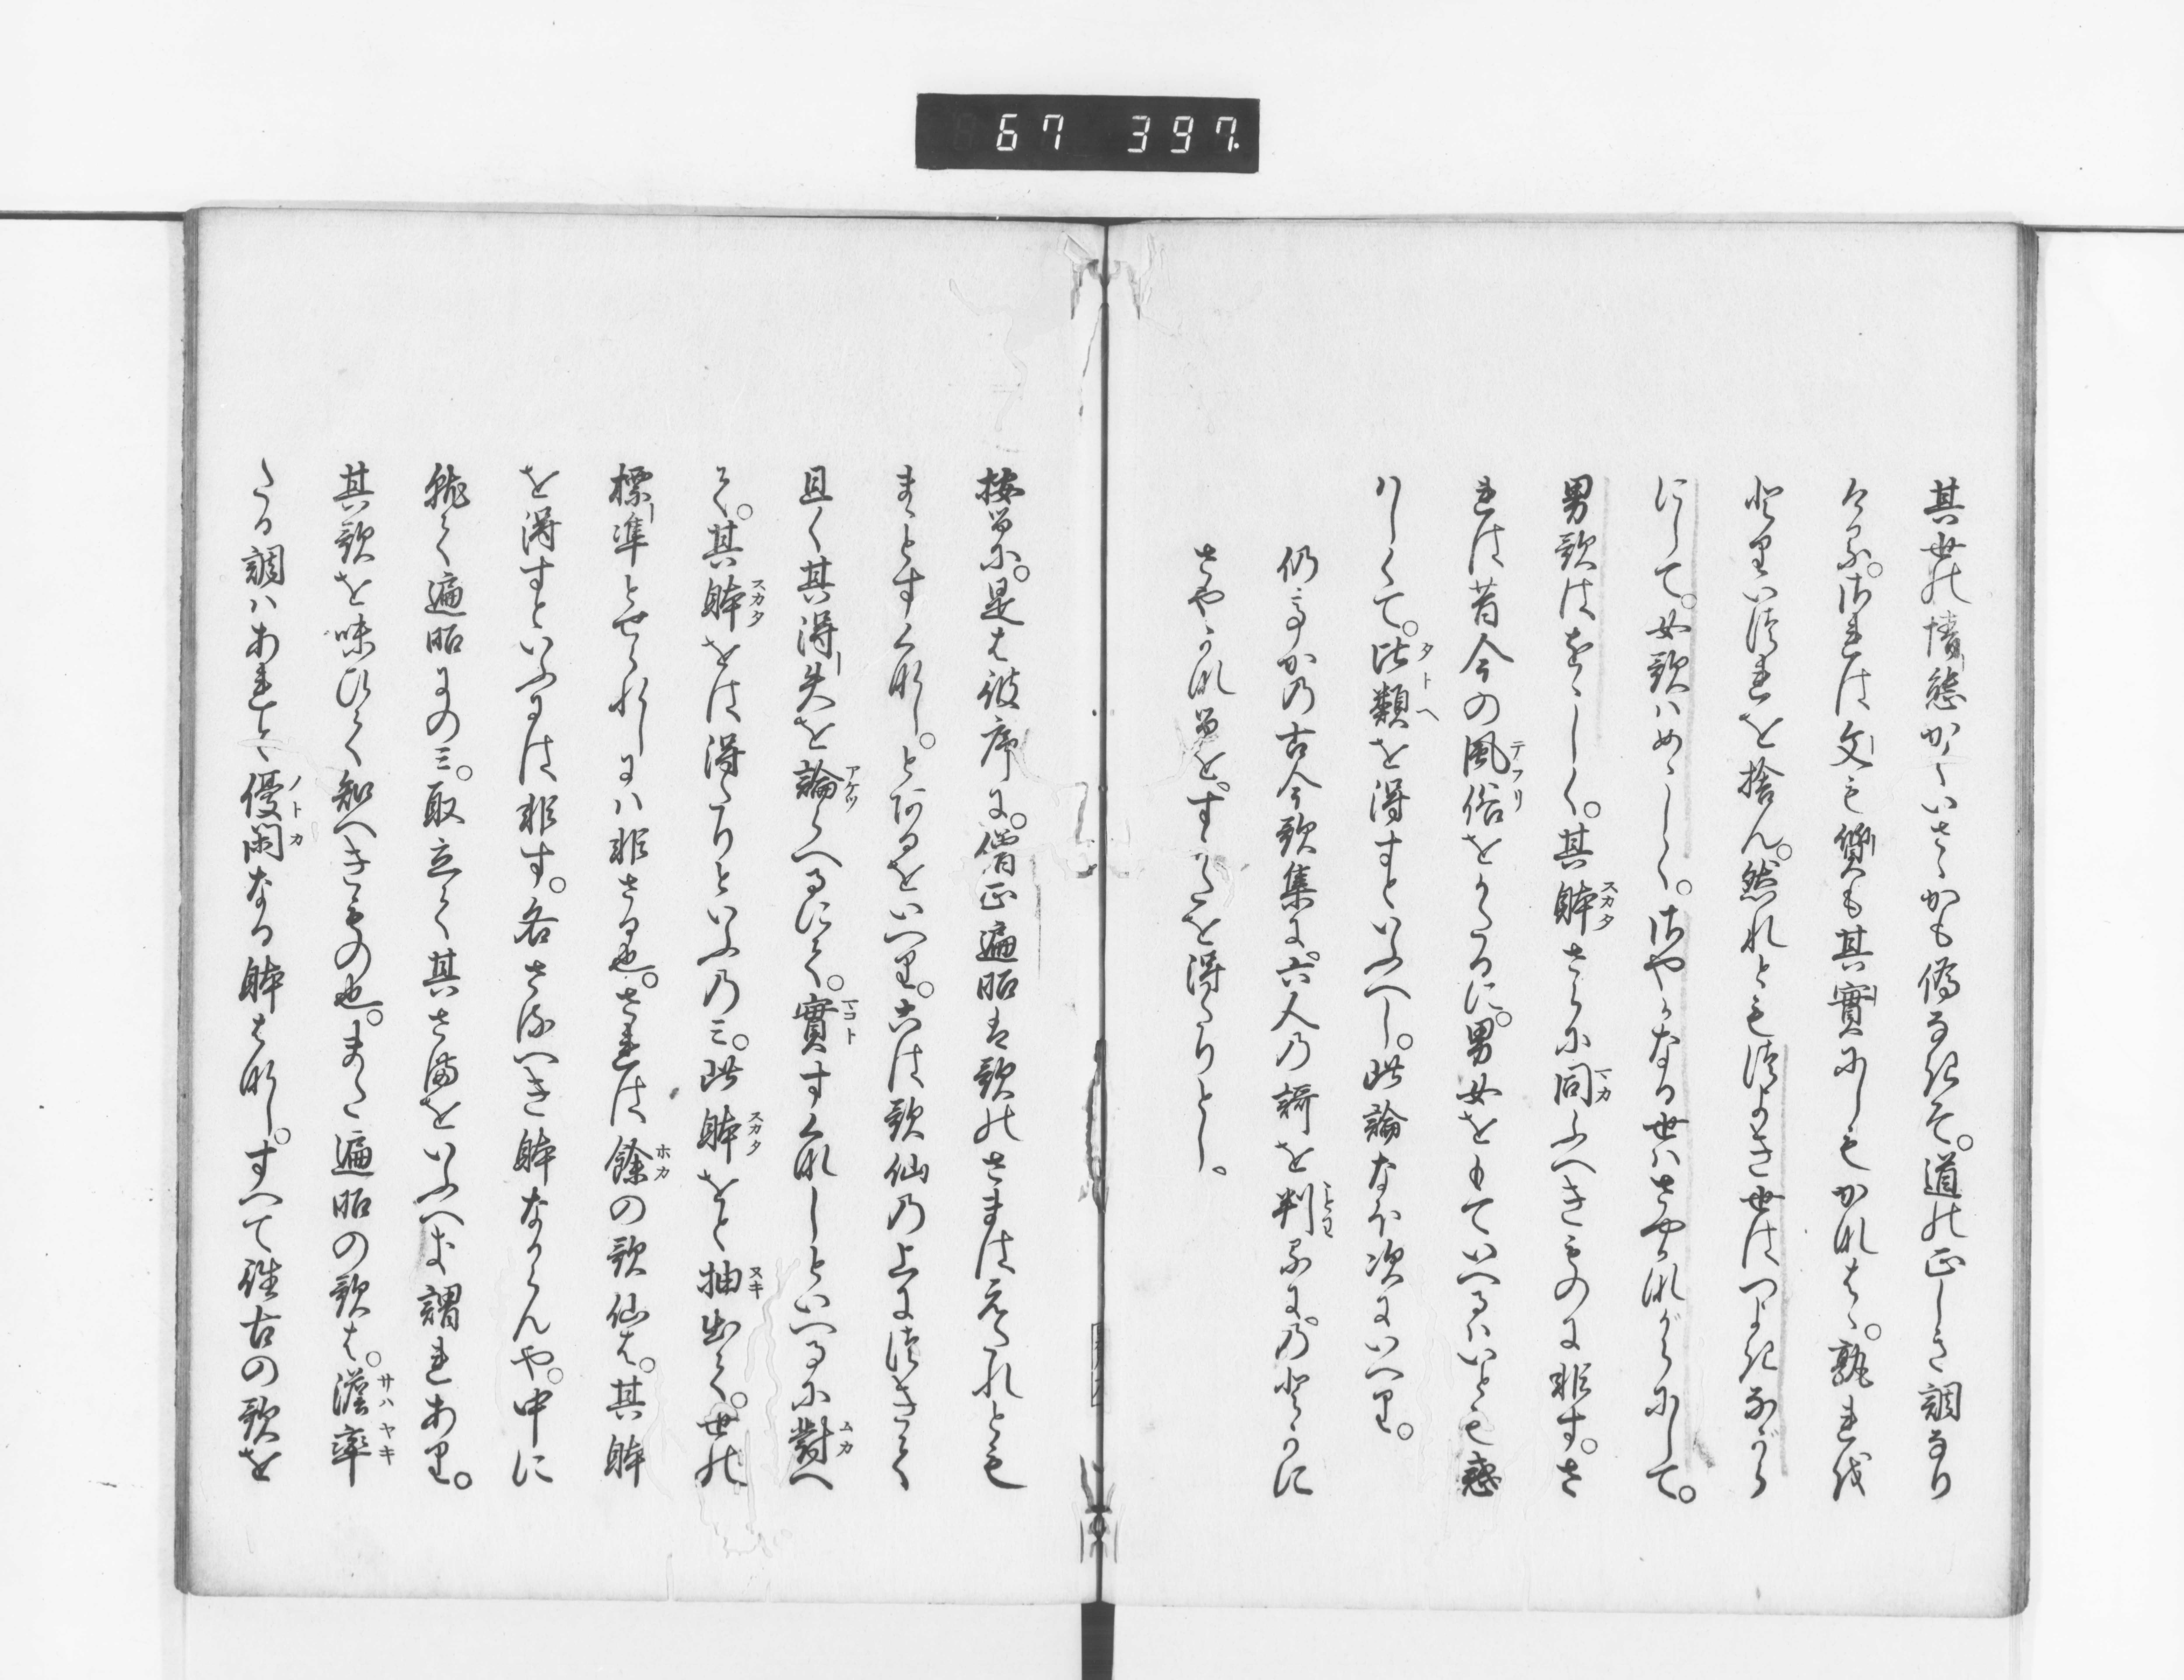 67 397
其世の情態かくいさゝかも偽なきそ。道の正しき調なり
ける。されは文も質も其實にしもかなはゝ。孰れを
とりいつれを捨ん。然れとも清よき世はつよきながら
にして。女歌はめゝしく。さやかなる世はさやかながらにして。
男歌はをゝしく。其躰さらに同ふへきものに非す。さ
れは昔今の風俗をかたるに。男女をもていへるはいとも惑
はしくて。比類を得すといふへし。此論なほ次にいへり。
仍高かの古今歌集に。六人の謌を判るに。のとかに
さやかなるを。すかたを得たりとし。
按るに。是は彼序に。僧正遍昭は歌のさまはえたれとも
まことすくなし。とあるをいへり。六は歌仙の上につきて
且く其得失を論らへるにて。實すくなしといへるに對へ
て。其躰をは得たりといふのミ。此躰をと抽出て。世の
標準とせられしには非さる也。されは餘の歌仙は。其躰
を得すといふには非す。各さるへき躰なからんや。中に
就て遍昭にのミ。取立て其さまをいふへき謂れあり。
其歌を味ひて知へきもの也。まつ遍昭の歌は。澹率
たる調はあれと優閑なる躰はなし。すへて往古の歌を